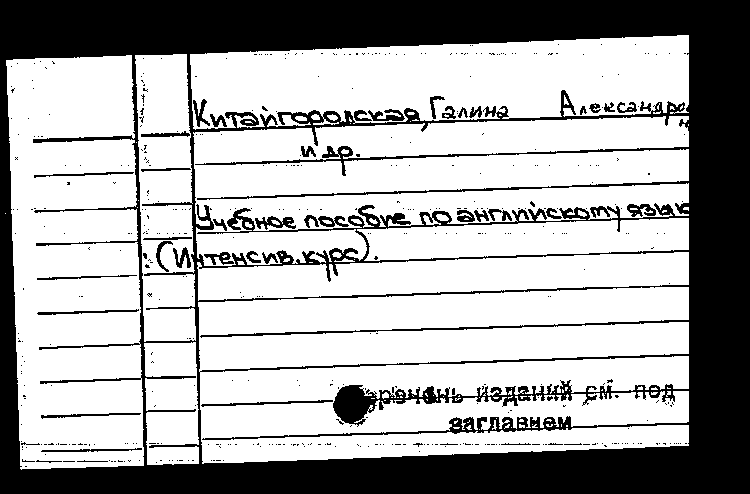 Китайгородская, Галина Александров
н
и др.
Учебное пособие по английскому языку
: (Интенсив. курс).
Перечень изданий см. под
заглавием